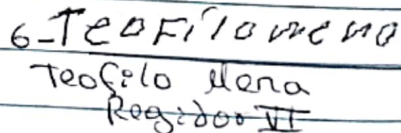 6-TeoFilo meno
Teofilo Mena
Regidor VI